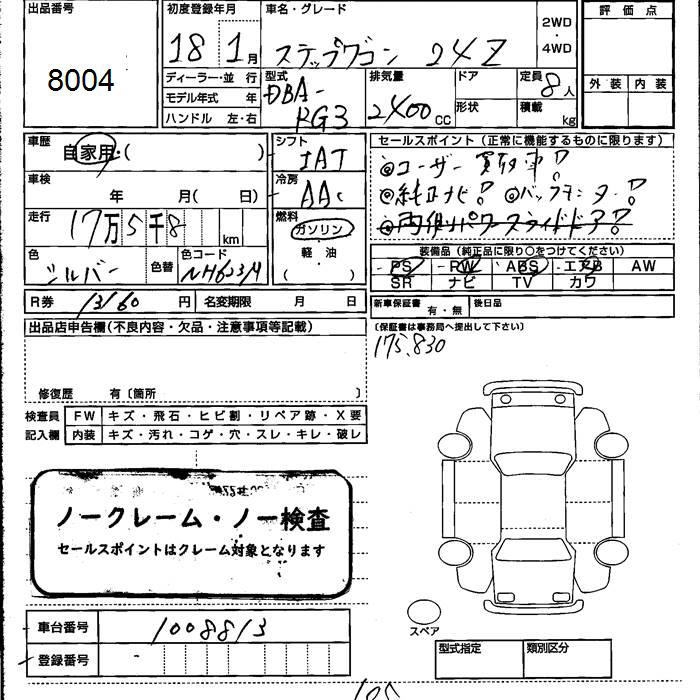 出品番号
8004
初度登録年月
18 1月
車名・グレード
ステップワゴン 24Z
2WD
・
4WD
評価点
外装 内装
ディーラー・並行
モデル年式 年
ハンドル 左・右
型式
DBA-
RG3
排気量
2400cc
ドア
形状
定員
8人
積載
kg
車歴
自家用・( )
車検
年 月( 日)
走行
17万5千8 km
色
シルバー
色替
色コード
NH623M
シフト
IAT
冷房
AAC
燃料
ガソリン
・
軽油
( )
セールスポイント(正常に機能するものに限ります)
◎ユーザー買取車!
◎純正ナビ! ◎バックモニター!
◎両側パワースライドドア!
装備品(純正品に限り○をつけてください)
PS PW ABS エアB AW
SR ナビ TV カワ
R券 13160円
名変期限 月 日
新車保証書 有・無
後日品
(保証書は事務局へ提出して下さい)
175,830
出品店申告欄(不良内容・欠品・注意事項等記載)
修復歴 有〔箇所 〕
検査員 FW キズ・飛石・ヒビ割・リペア跡・X要
記入欄 内装 キズ・汚れ・コゲ・穴・スレ・キレ・破レ
ノークレーム・ノー検査
セールスポイントはクレーム対象となります
スペア
車台番号 1008813
登録番号 -
型式指定
類別区分